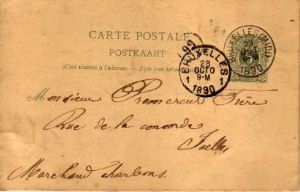 CARTE POSTALE
POSTKAART
(Côté réservé à l'adresse. — Zijde voor het adres
BRUXELLES
1
28
OCTO
9-M
1
1890
1890
Monsieur Premereur Frère
Rue de la concorde
Ixelles
Marchand charbons